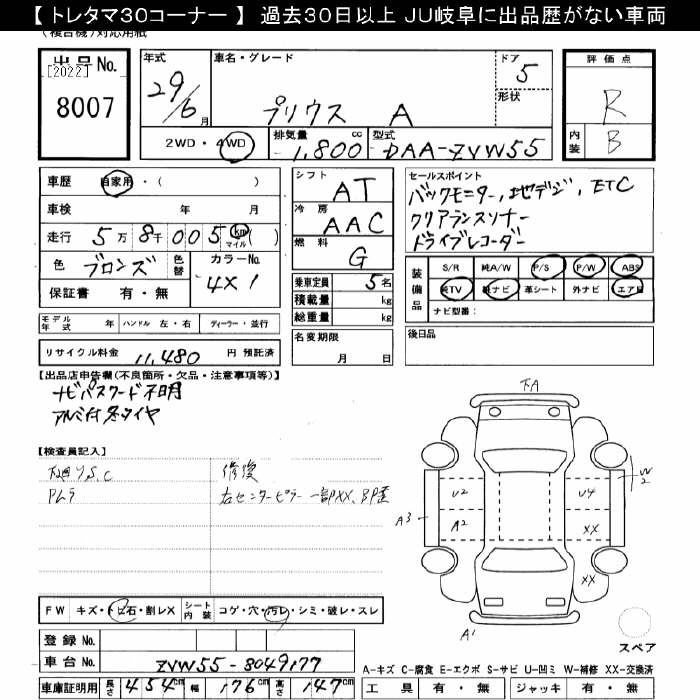 【 トレタマ30コーナー 】 過去30日以上 JU岐阜に出品歴がない車両
(複合機)対応用紙
出品No.
[2022]
8007
年式
29/6月
車名・グレード
プリウス A
ドア
5
形状
評価点
R
内装
B
2WD・4WD
排気量
1,800 cc
型式
DAA-ZVW55
車歴 自家用・( )
車検 年 月
走行 5万8千005 km マイル ( )
色 ブロンズ 色替 カラーNo. 4X1
保証書 有・無
シフト AT
冷房 AAC
燃料 G
乗車定員 5名
積載量 kg
総重量 kg
名変期限
月 日
セールスポイント
バックモニター,地デジ,ETC
クリアランスソナー
ドライブレコーダー
装備品
S/R 純A/W P/S P/W ABS
純TV 純ナビ 革シート 外ナビ エアB
ナビ型番:
後日品
モデル年式 年 ハンドル 左・右 ディーラー・並行
リサイクル料金 11,480 円 預託済
【出品店申告欄(不良箇所・欠品・注意事項等)】
ナビパスワード不明
アルミ付冬タイヤ
【検査員記入】
下廻りS,C
PLラ
修復
右センターピラー一部XX、BP歪
下A
U2
A2
A3
U4
XX
XX
W2
A1
スペア
FW キズ・トビ石・割レX
シート内装 コゲ・穴・汚レ・シミ・破レ・スレ
登録 No.
車台 No. ZVW55-8049177
車庫証明用 長さ 454cm 幅 176cm 高さ 147cm
A-キズ C-腐食 E-エクボ S-サビ U-凹ミ W-補修 XX-交換済
工具 有・無 ジャッキ 有・無